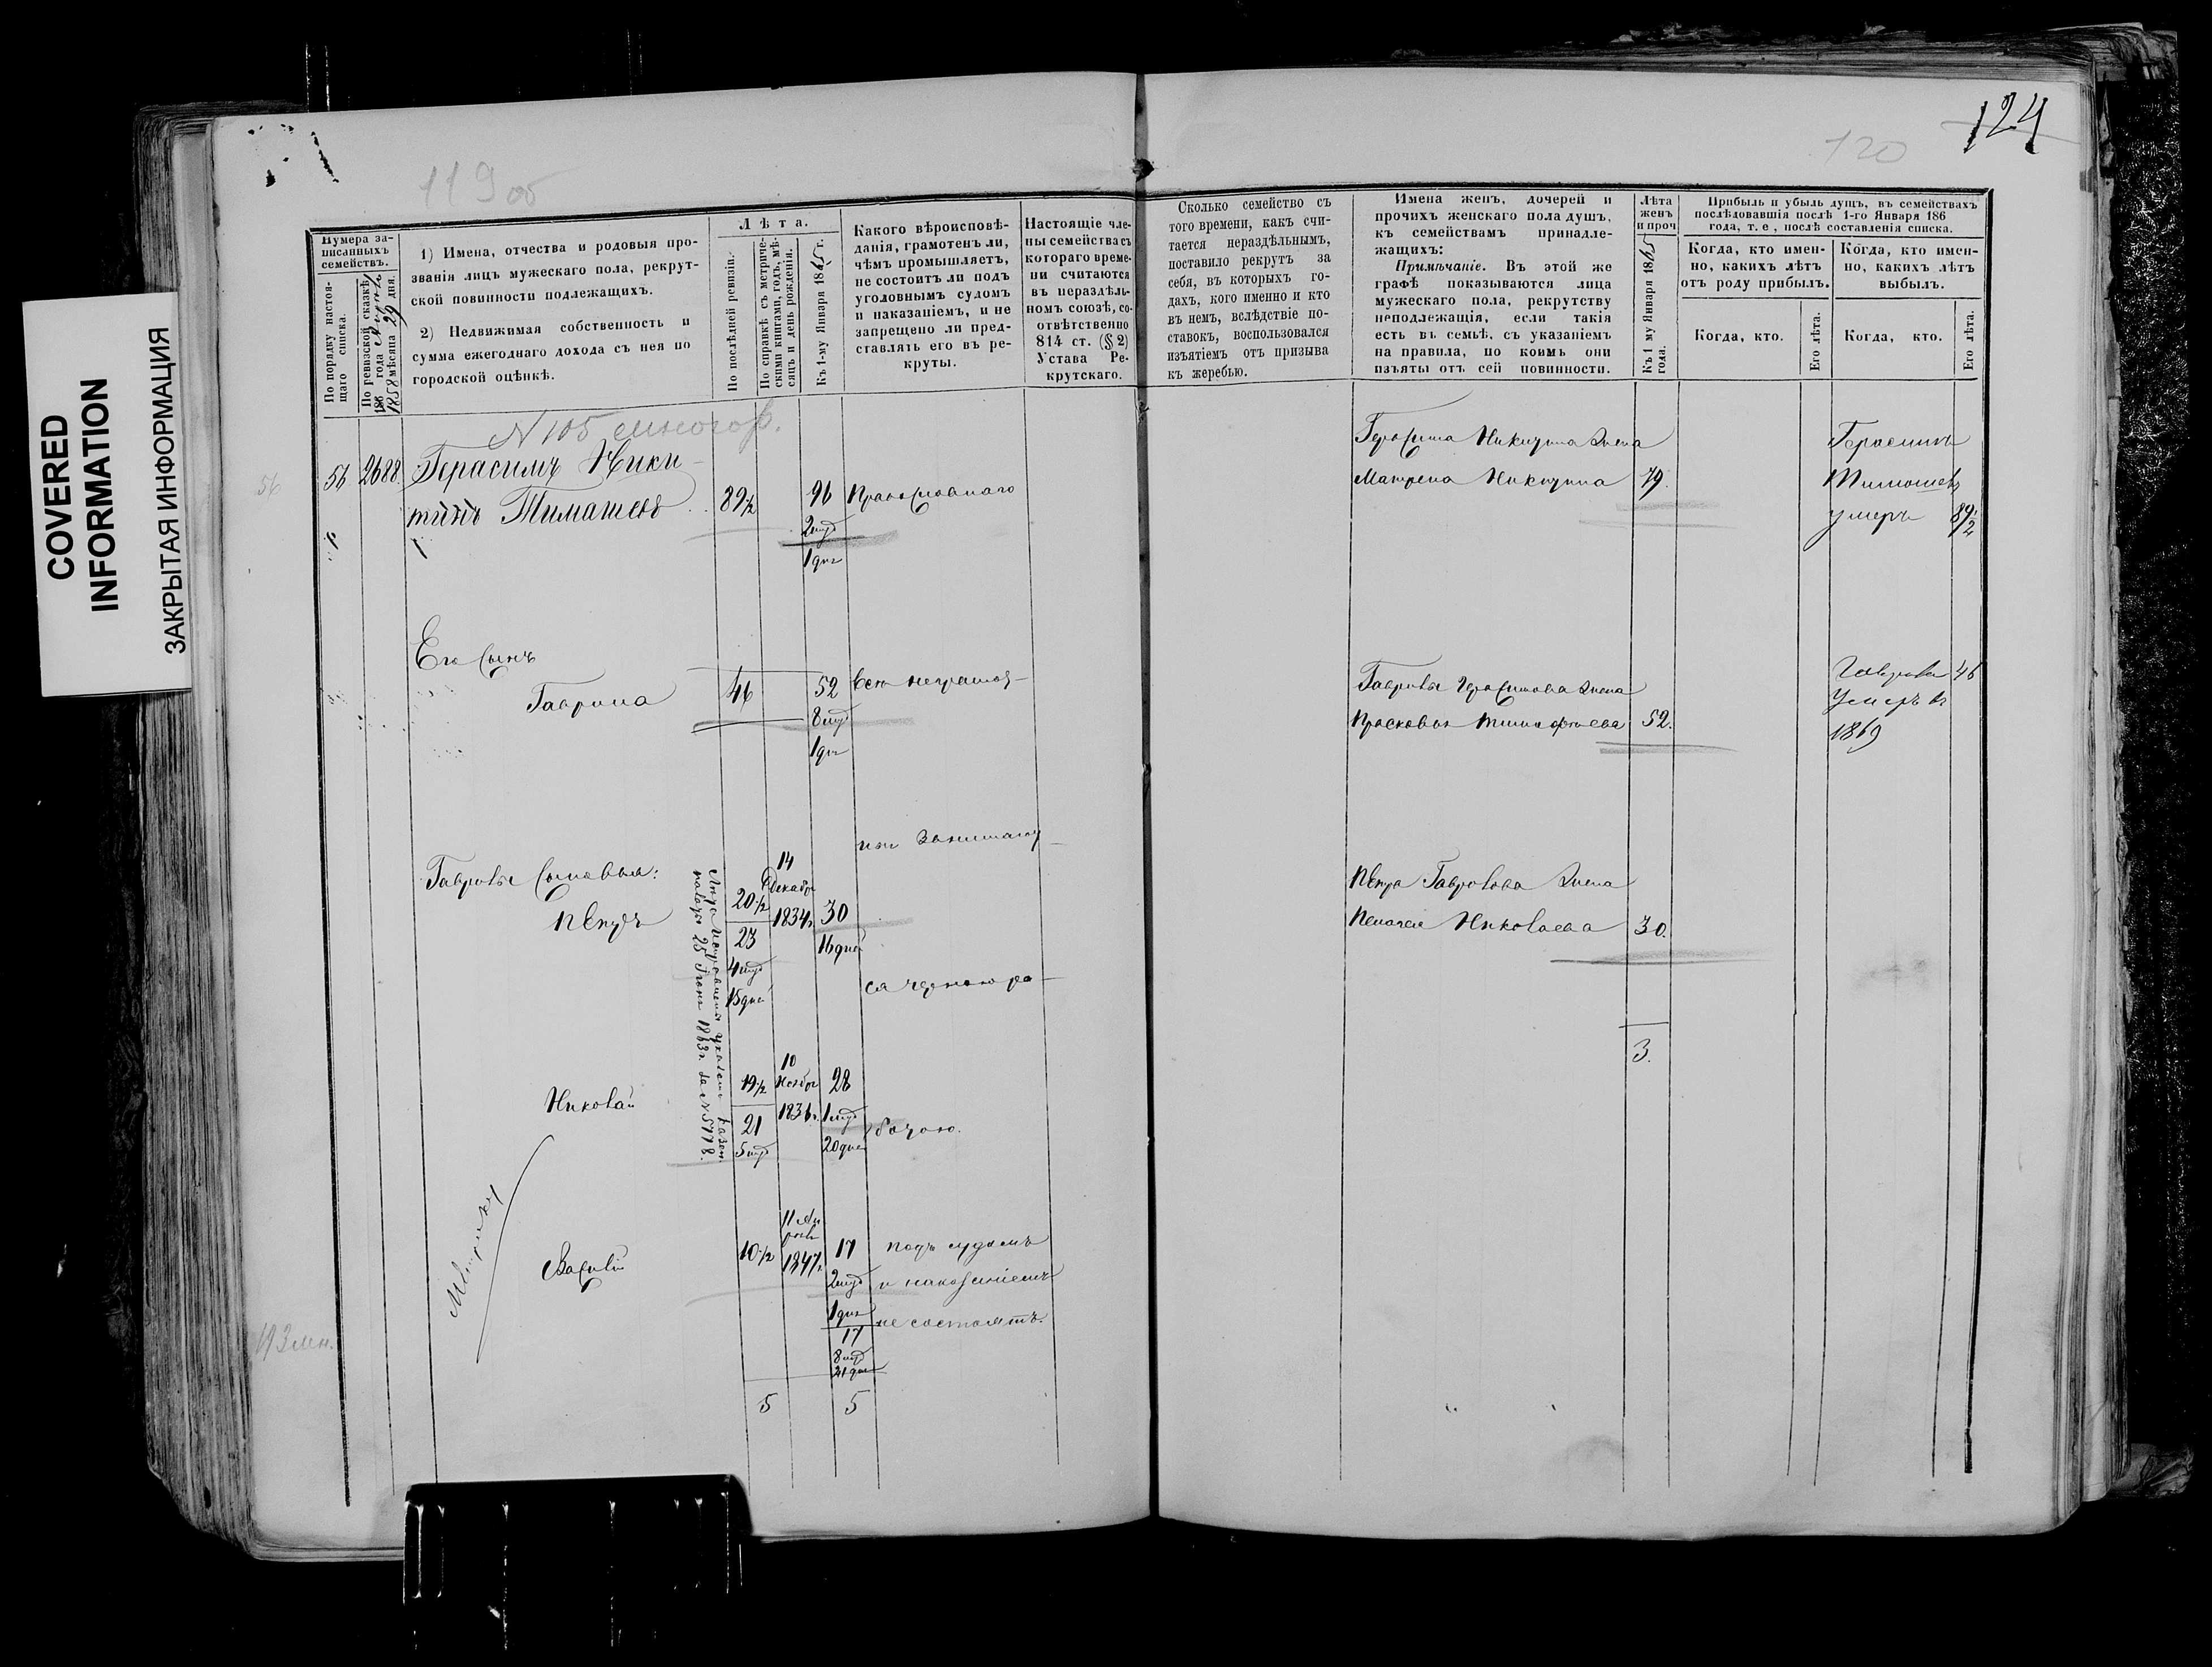 COVERED
INFORMATION
ЗАКРЫТАЯ ИНФОРМАЦИЯ
119 об
Нумера за-
писанныхъ
семействъ.
По порядку настоя-
щаго списка.
По ревизской сказкѣ
1858 мѣсяца 29 дня.
1) Имена, отчества и родовыя про-
званія лицъ мужескаго пола, рекрут-
ской повинности подлежащихъ.
2) Недвижимая собственность и
сумма ежегоднаго дохода съ нея по
городской оцѣнкѣ.
Лѣта.
По послѣдней ревизіи.
По справкѣ съ метриче-
скими книгами, годъ, мѣ-
сяцъ и день рожденія.
Къ 1-му Января 1865 г.
Какого вѣроисповѣ-
данія, грамотенъ ли,
чѣмъ промышляетъ,
не состоитъ ли подъ
уголовнымъ судомъ
и наказаніемъ, и не
запрещено ли пред-
ставлять его въ ре-
круты.
Настоящіе чле-
ны семейства съ
котораго време-
ни считаются
въ нераздѣль-
номъ союзѣ, со-
отвѣтственно
814 ст. (§ 2)
Устава Ре-
крутскаго.
N 105
56
56
2688.
Герасимъ Ники-
тинъ Тимашевъ
89½
96
2 мѣс
1 дня
Православнаго
Его Сынъ
Гаврила
46
52
8 мѣс
1 дня
всѣ неграмот-
ны занимают-
Гаврилы Сыновья:
Петръ
20½
23
4 мѣс
15 дней
14
Декабр
1834 г
30
16 дней
ся черною ра-
Николай
19½
21
5 мѣс
10
Ноябр
1836 г
28
1 мѣс
20 дней
ботою.
Лѣта исправлены указомъ казен.
палаты 25 Іюня 1863 г. за N 5778.
Василій
10½
11 Ап
рѣля
1847 г
17
2 мѣс
1 дня
17
8 мѣс
21 дня
подъ судомъ
и наказаніемъ
не состоятъ.
5
5
124
120
Сколько семейство съ
того времени, какъ счи-
тается нераздѣльнымъ,
поставило рекрутъ за
себя, въ которыхъ го-
дахъ, кого именно и кто
въ немъ, вслѣдствіе по-
ставокъ, воспользовался
изъятіемъ отъ призыва
къ жеребью.
Имена женъ, дочерей и
прочихъ женскаго пола душъ,
къ семействамъ принадле-
жащихъ:
Примѣчаніе. Въ этой же
графѣ показываются лица
мужескаго пола, рекрутству
неподлежащія, если такія
есть въ семьѣ, съ указаніемъ
на правила, по коимъ они
изъяты отъ сей повинности.
Лѣта
женъ
и проч
Къ 1 му Января 1865
года.
Прибыль и убыль душъ, въ семействахъ
послѣдовавшія послѣ 1-го Января 186
года, т. е, послѣ составленія списка.
Когда, кто имен-
но, какихъ лѣтъ
отъ роду прибылъ.
Когда, кто имен-
но, какихъ лѣтъ
выбылъ.
Когда, кто.
Его лѣта.
Когда, кто.
Его лѣта.
Герасима Никитина жена
Матрена Никитина
79.
Герасимъ
Тимошевъ
умеръ
89½
Гаврилы Герасимова жена
Прасковья Тимофѣева
52.
Гаврила
46
Умеръ въ
1869
Петра Гаврилова жена
Пелагея Николаева
30.
3.